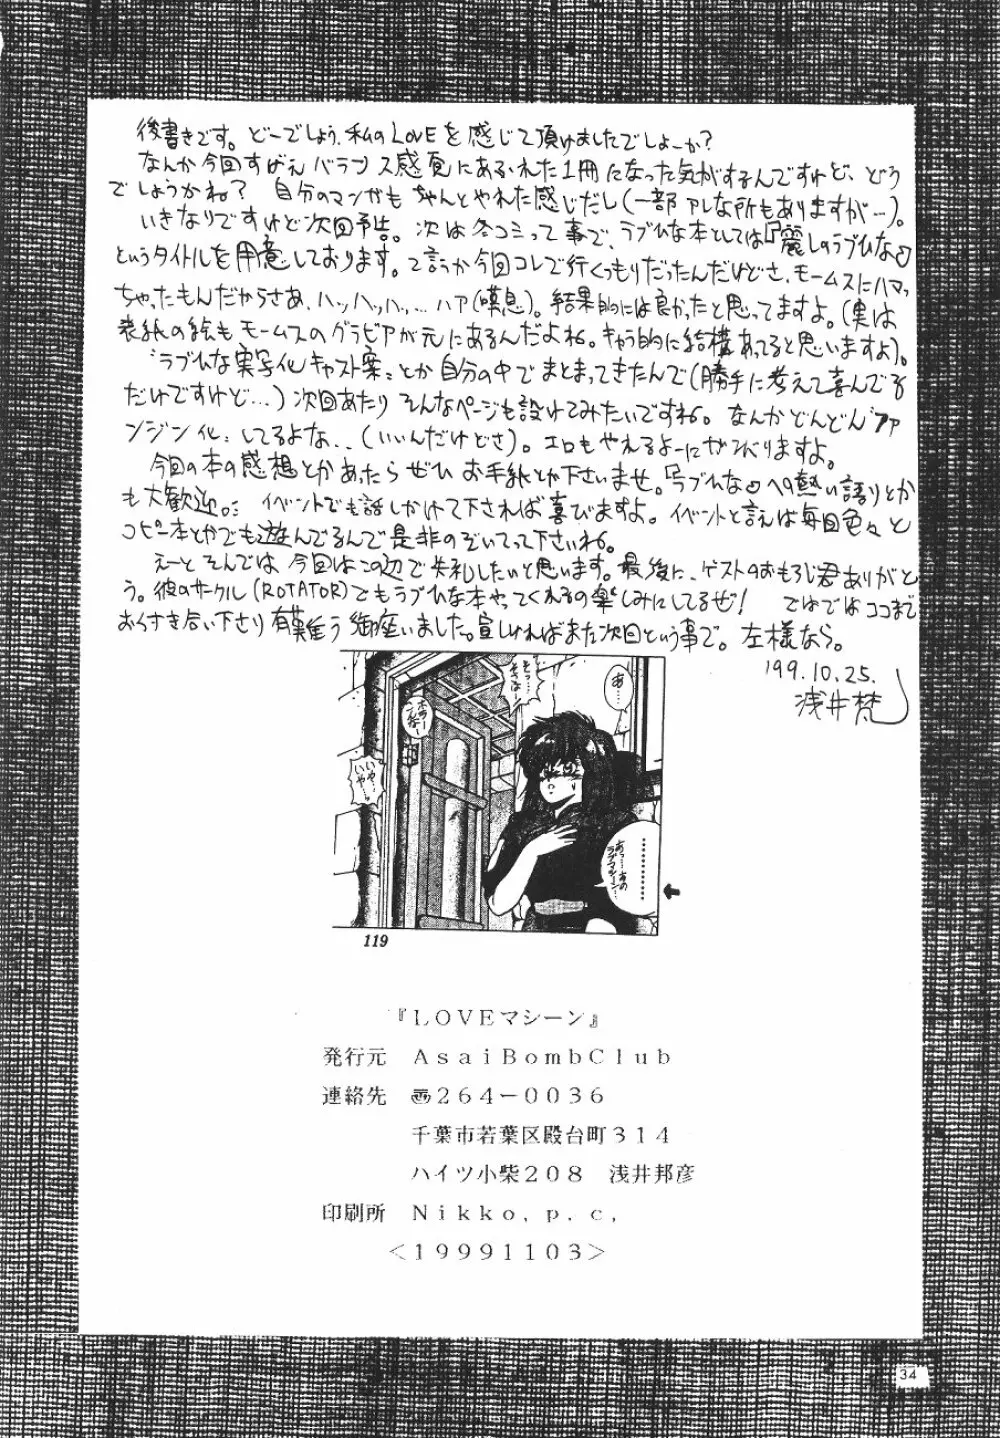 後書きです。どーでしょう、私のLOVEを感じて頂けましたでしょーか?
なんか今回すげえバランス感覚にあふれた1冊になった気がするんですけれど、どう
でしょうかね? 自分のマンガもちゃんとやれた感じだし(一部アレな所もありますが…)。
いきなりですけれど次回予告。次は冬コミって事で、ラブひな本としては『麗しのラブひな♡
というタイトルを用意しております。て言うか今回コレで行くつもりだったんだけどさ、モームスにハマっ
ちゃったもんだからさあ、ハッハッハッ…ハァ(嘆息)。結果的には良かったと思ってますよ。(実は
表紙の絵もモームスのグラビアが元にあるんだよね。キャラ的に結構あってると思いますよ)。
"ラブひな実写化キャスト案"とか自分の中でまとまってきたんで(勝手に考えて喜んでる
だけですけれど…)次回あたりそんなページも設けてみたいですね。なんかどんどん"ファ
ンジン化"してるよな、、(いいんだけどさ)。エロもやえるよーにガンバりますよ。
今回の本の感想とかあったらぜひお手紙とか下さいませ。『ラブひな♡への熱い語りとか
も大歓迎。イベントでも話しかけて下されば喜びますよ。イベントと言えば毎回色々と
コピー本とかでも遊んでるんで是非のぞいてって下さいね。
えーとそんでは今回はこの辺で失礼したいと思います。最後に、ゲストのおもろじ君ありがと
う。彼のサークル(ROTATOR)でもラブひな本やってくれるの楽しみにしてるぜ! ではではココまで
おくすき合い下さり有難う御座いました。宜しければまた次回という事で。左様なら。
'99.10.25.
浅井梵
あ…
そっ…
そさな…
いや…
いや…
…………
あっ…あの
ラブマシーン…
119
『LOVEマシーン』
発行元 AsaiBombClub
連絡先 〠264-0036
千葉市若葉区殿台町314
ハイツ小柴208 浅井邦彦
印刷所 Nikko,p.c,
<19991103>
34